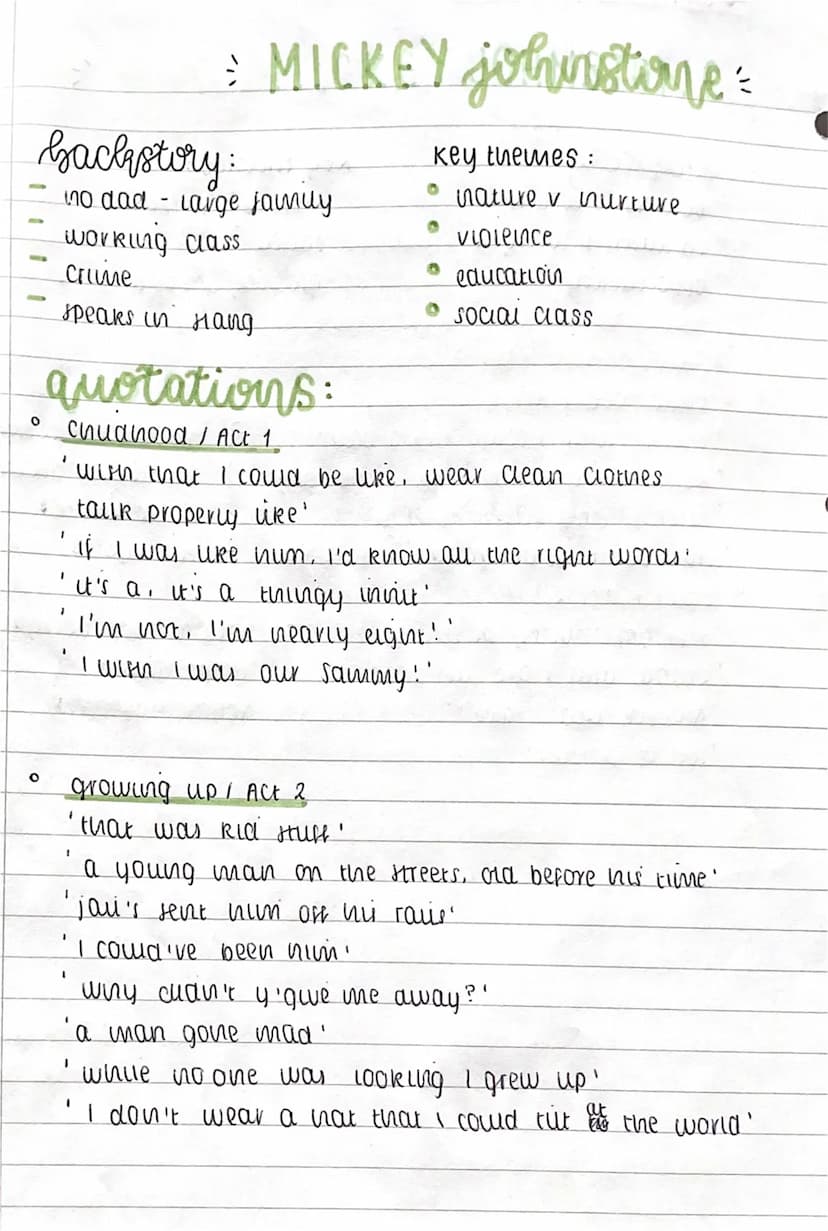 MICKEY johnstone
backstory:
- no dad - large family
- working class
- crime
- speaks in slang
key themes:
• nature v nurture
• violence
• education
• social class
quotations:
° childhood / Act 1
'wish that I could be like, wear clean clothes
talk properly like'
'if I was like him, I'd know all the right words'
'it's a, it's a thingy innit'
'I'm not, I'm nearly eight!'
'I wish I was our Sammy!'
° growing up / Act 2
'that was kid stuff'
'a young man on the streets, old before his time'
'jail's sent him off his rails'
'I could've been him'
'why cudn't y'give me away?'
'a man gone mad'
'while no one was looking I grew up'
'I don't wear a hat that I could tilt at the world'